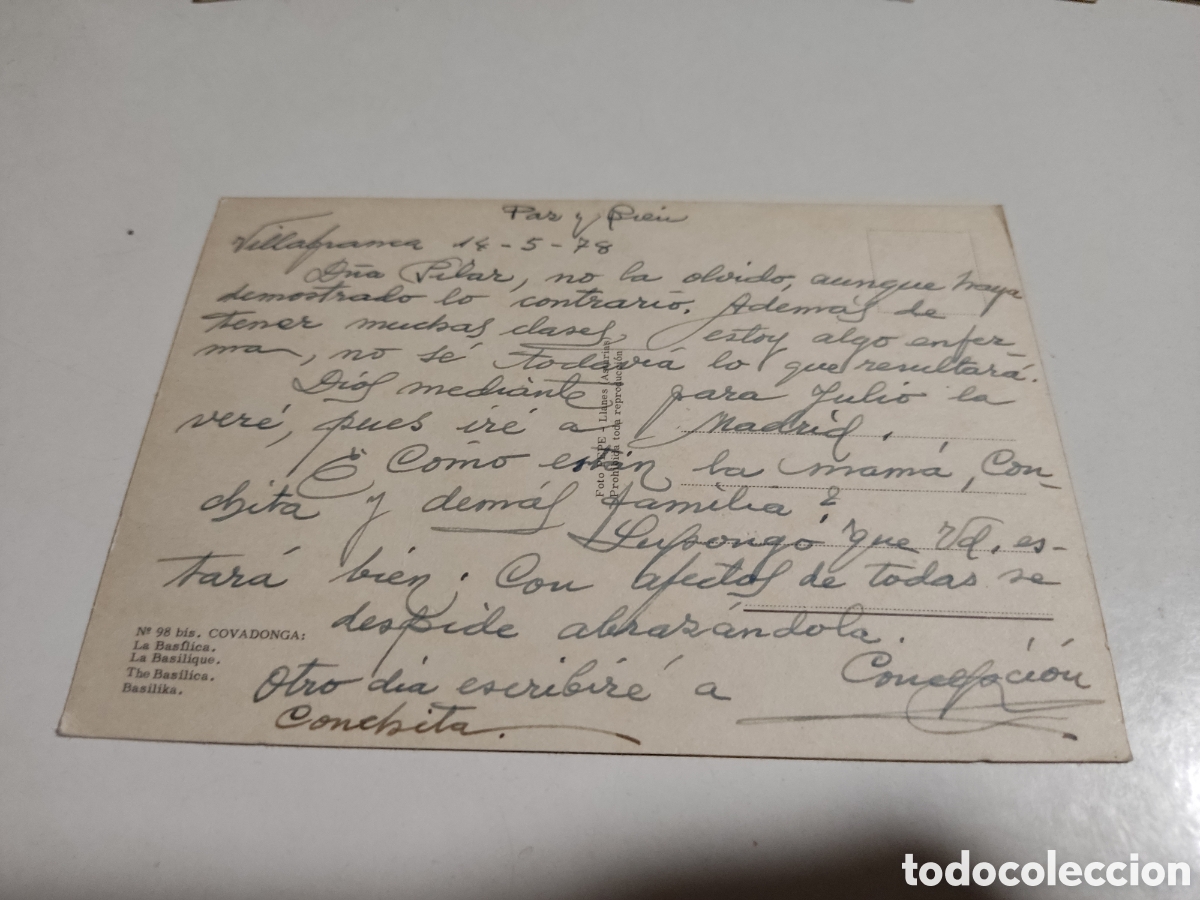 Paz y Bien
Villafranca 14-5-78
Dña Pilar, no la olvido, aunque haya
demostrado lo contrario. Además de
tener muchas clases, estoy algo enfer-
ma, no sé todavía lo que resultará.
Diós mediante para Julio la
veré, pues iré a Madrid.
¿Como están la mamá, Con-
chita y demás familia?
Supongo que Vd. es-
tará bien. Con afectos de todas se
despide abrazándola.
Concepción
Otro día escribiré a
Conchita.
Nº 98 bis. COVADONGA:
La Basílica.
La Basilique.
The Basilica.
Basilika.
Foto PEPE - Llanes (Asturias)
Prohibida toda reproducción
todocoleccion